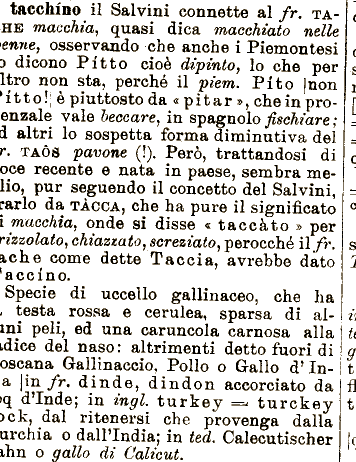 tacchíno il Salvini connette al fr. TA-
HE macchia, quasi dica macchiato nelle
penne, osservando che anche i Piemontesi
o dicono Pítto cioè dipinto, lo che per
ltro non sta, perché il piem. Píto |non
Pítto!| è piuttosto da « pitar », che in pro-
enzale vale beccare, in spagnolo fischiare;
d altri lo sospetta forma diminutiva del
r. TAÔS pavone (!). Però, trattandosi di
oce recente e nata in paese, sembra me-
lio, pur seguendo il concetto del Salvini,
rarlo da TÀCCA, che ha pure il significato
i macchia, onde si disse « taccàto » per
rizzolato, chiazzato, screziato, perocché il fr.
ache come dette Taccia, avrebbe dato
accíno.
Specie di uccello gallinaceo, che ha
testa rossa e cerulea, sparsa di al-
uni peli, ed una caruncola carnosa alla
adice del naso: altrimenti detto fuori di
oscana Gallinaccio, Pollo o Gallo d' In-
a |in fr. dinde, dindon accorciato da
q d'Inde; in ingl. turkey = turckey
ock, dal ritenersi che provenga dalla
urchia o dall'India; in ted. Calecutischer
ahn o gallo di Calicut.